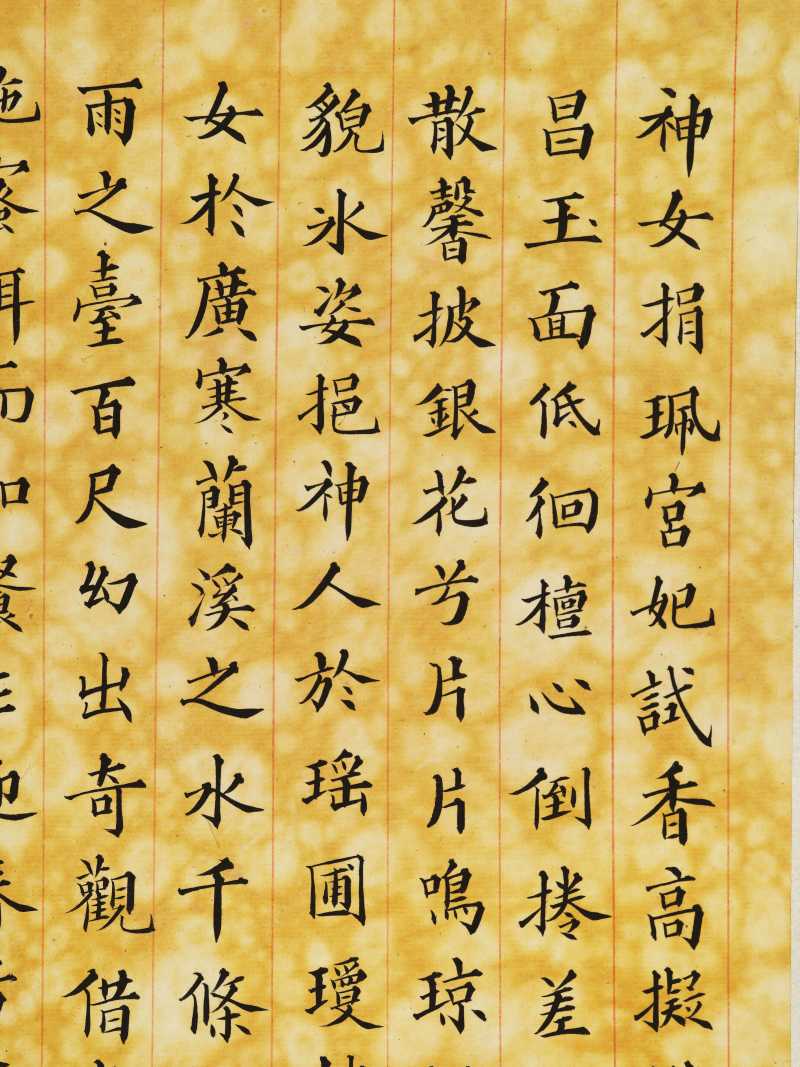 神女捐珮宮妃試香高擬
昌玉面低徊檀心倒捲差
散馨披銀花兮片片鳴琼
貌冰姿挹神人於瑶圃瓊
女於廣寒蘭溪之水千條
雨之臺百尺幻出奇觀借